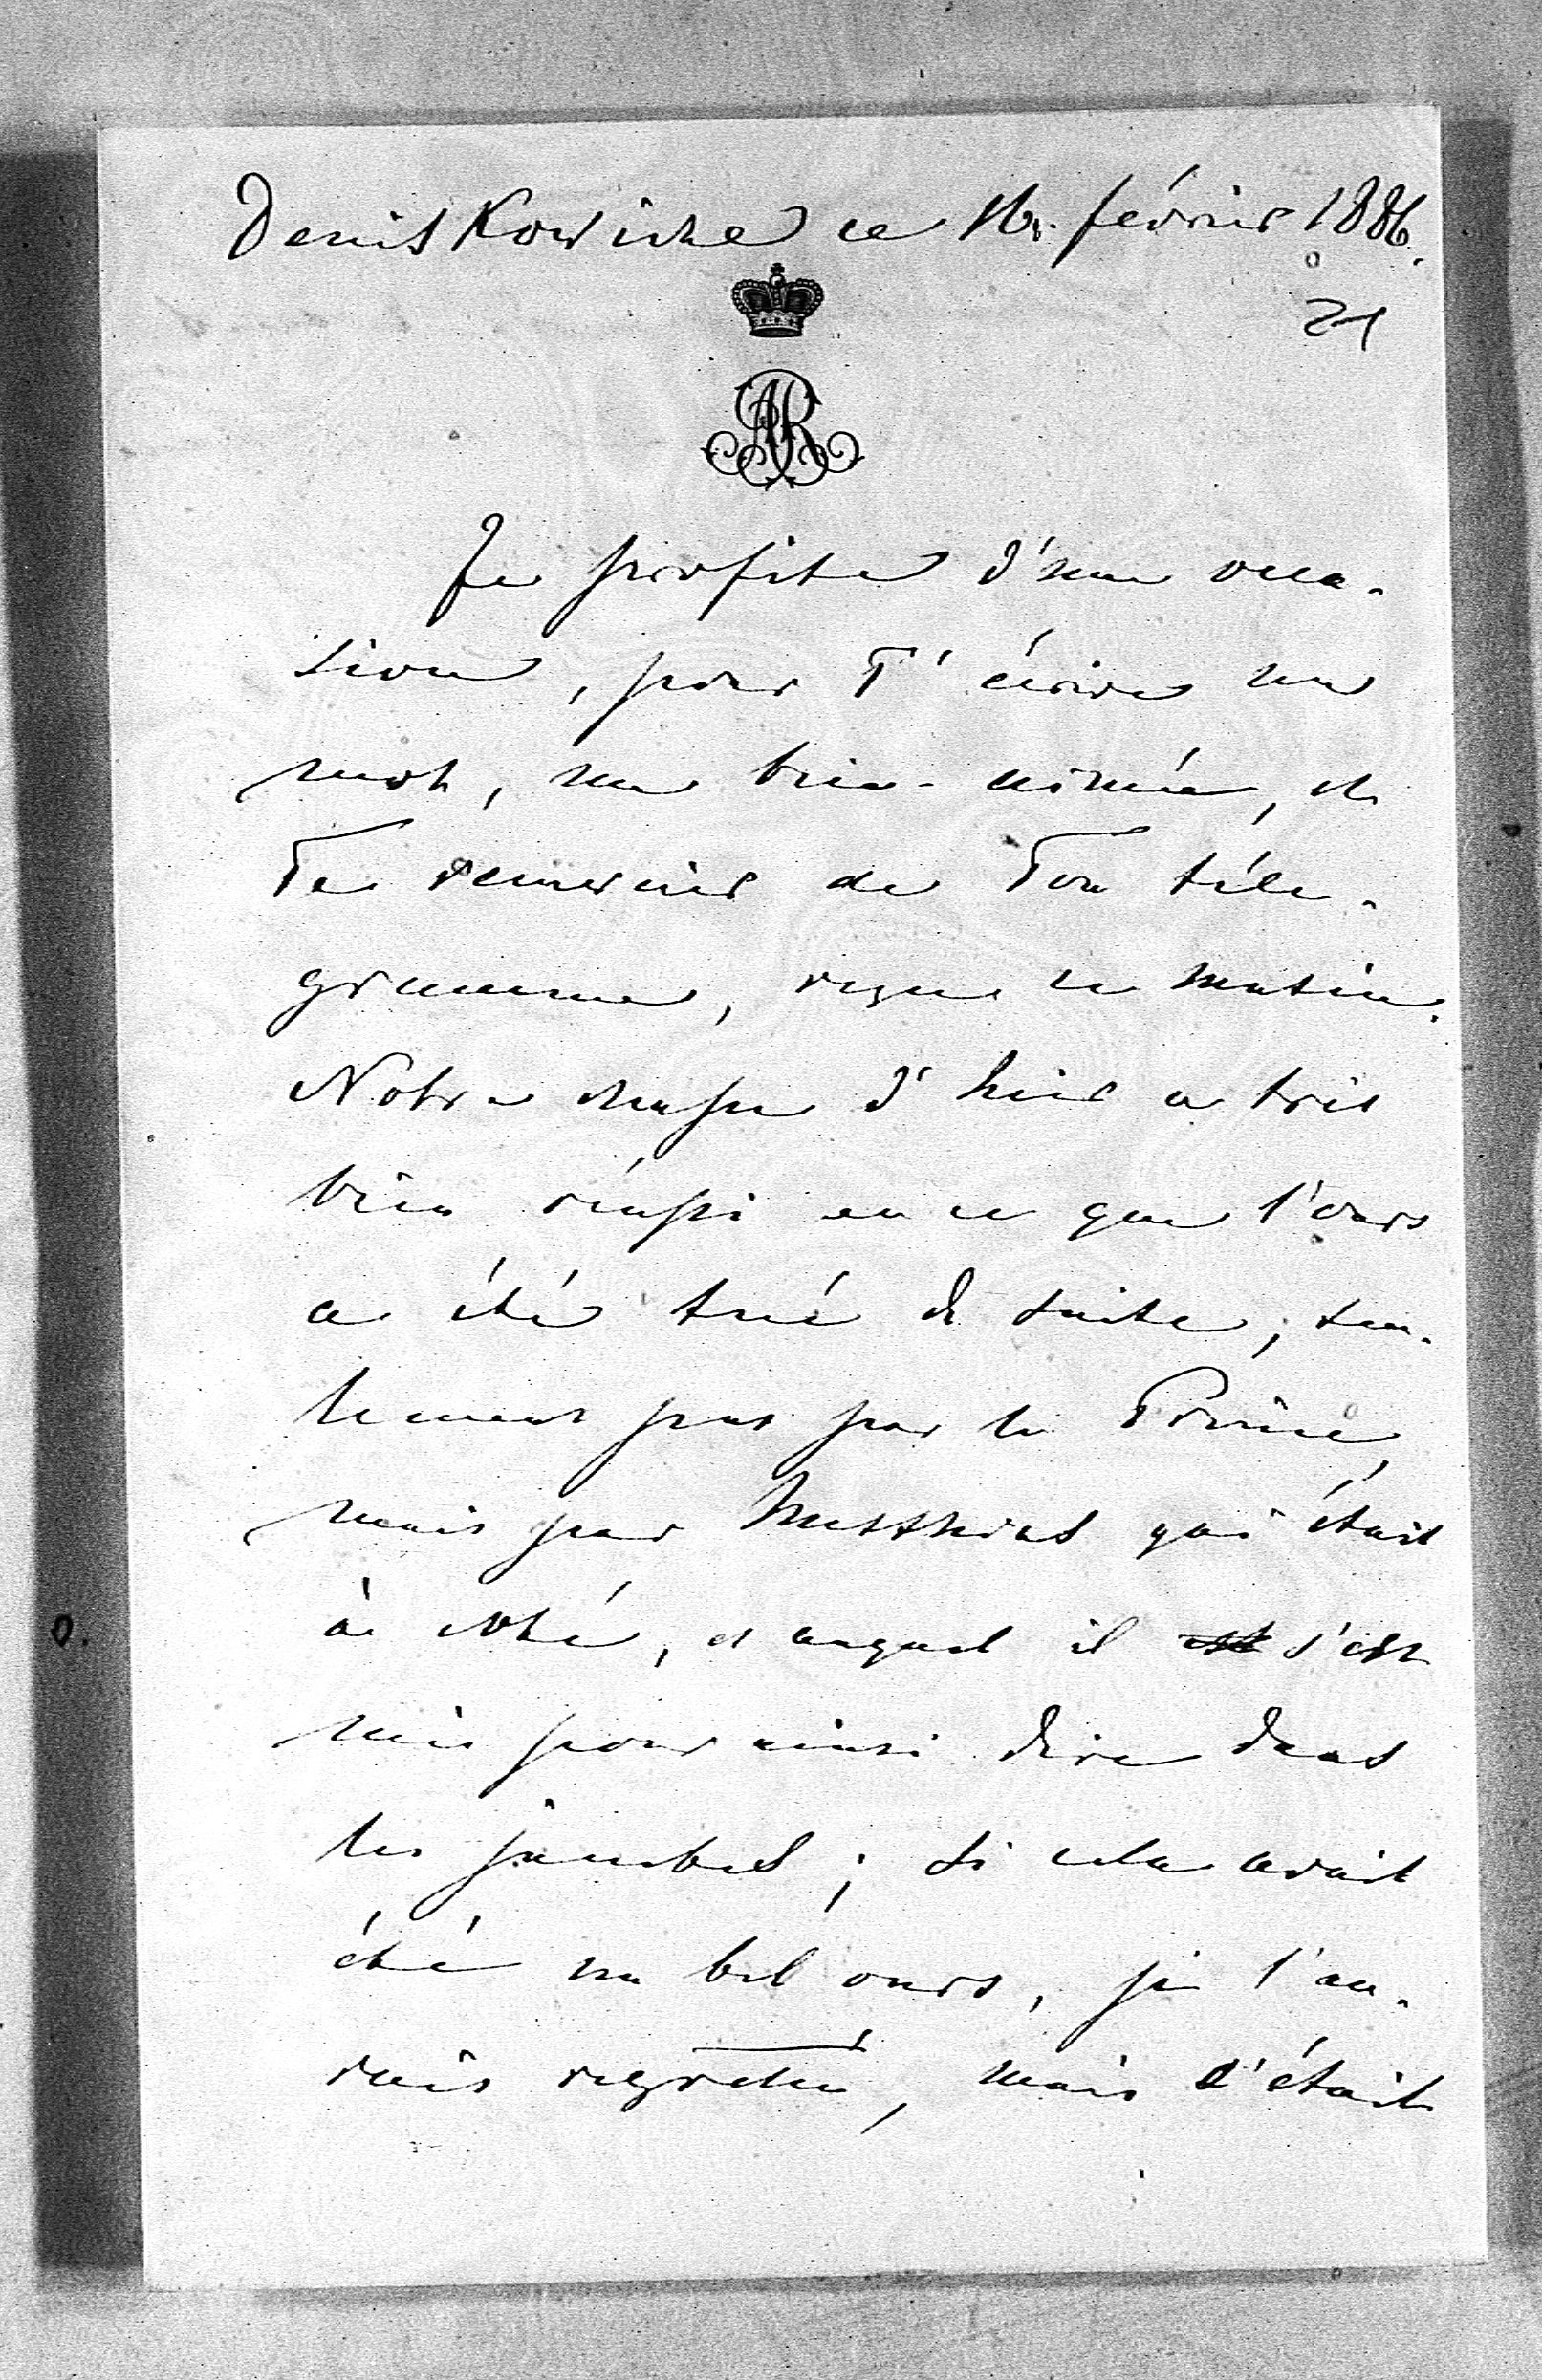 Deniskowitche ce 16. février 1886.
21
AR
Je profite d'une occa-
sion, pour T'écrire un
mot, ma bien-aimée, et
Te remercier de Ton télé-
gramme, reçu ce matin.
Notre chasse d'hier a très
bien réussi en ce que l'ours
a été tué de suite, seu-
lement pas par le Prince,
mais par Matthias qui était
à côté, et auquel il est s'est
mis pour ainsi dire dans
les jambes; si cela avait
été un bel ours, je l'au-
rais regretté, mais c'était